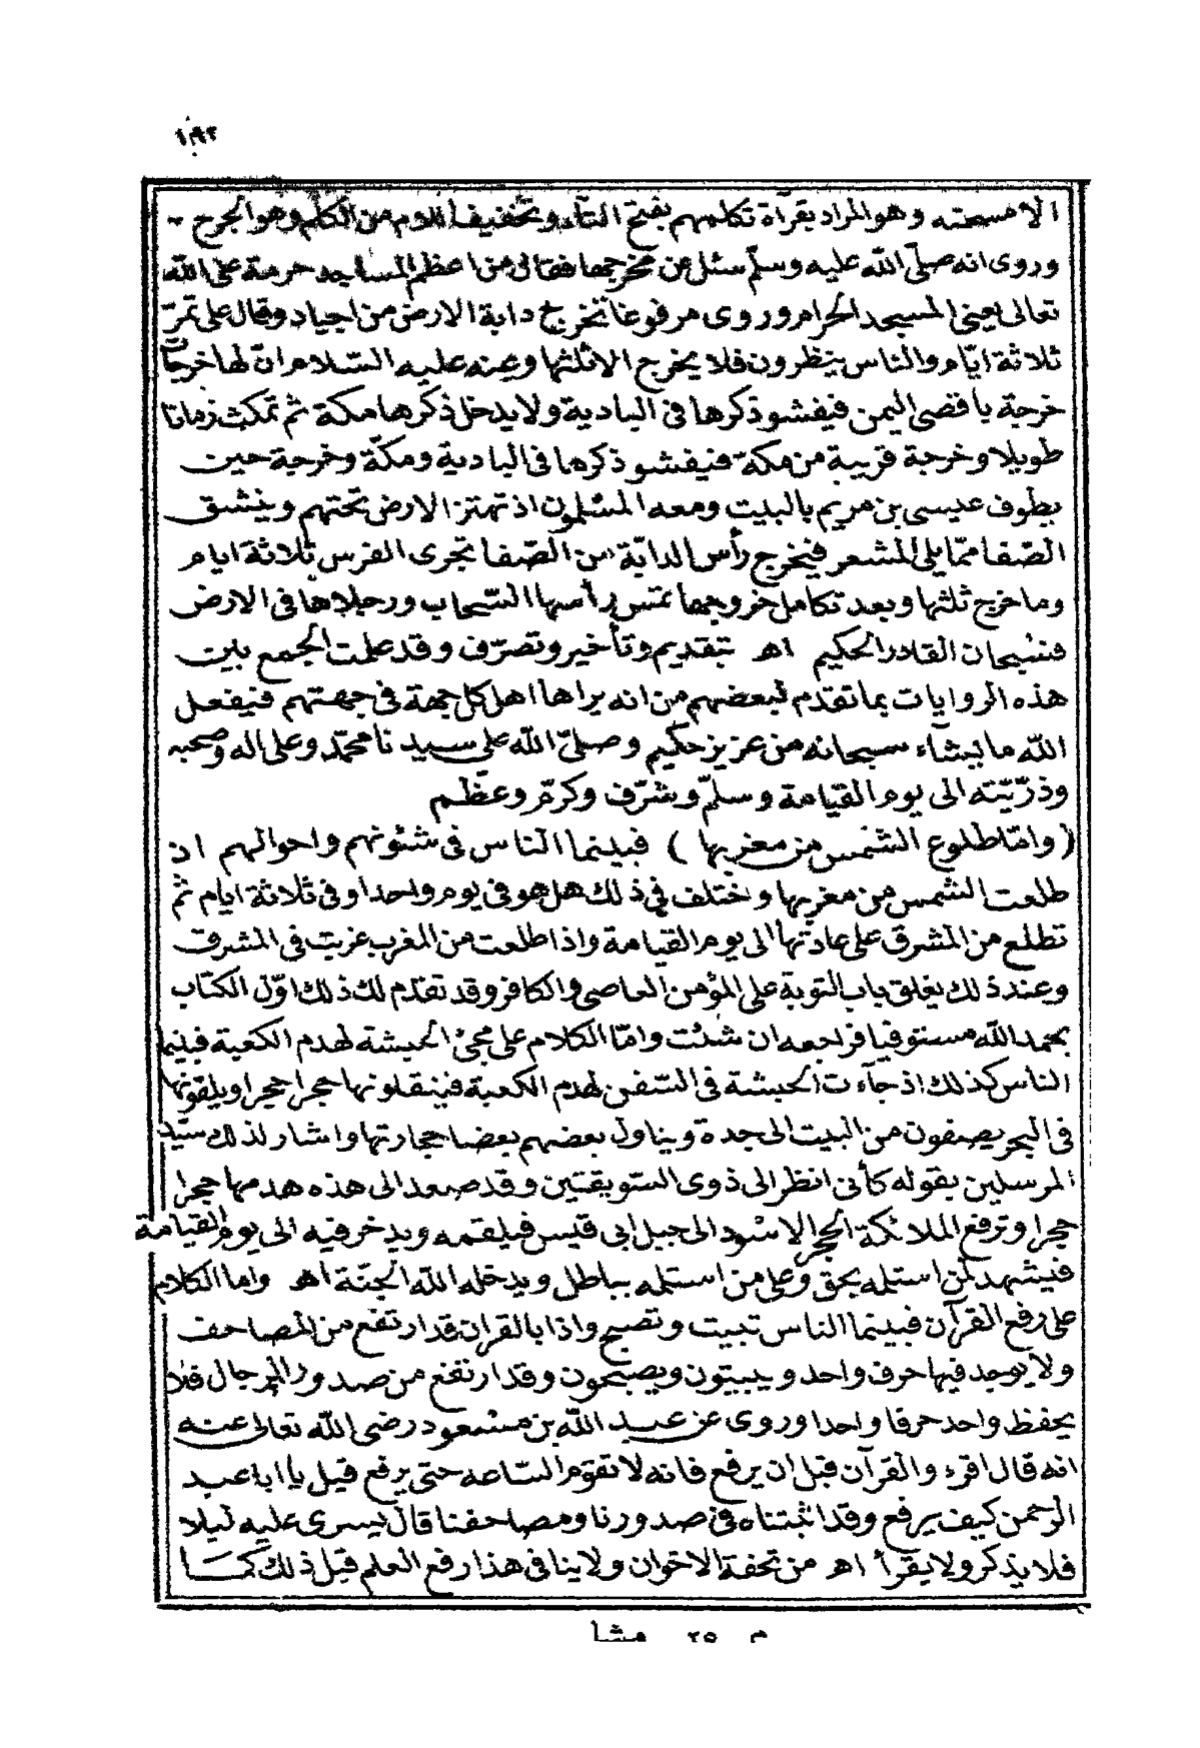 ١٩٣
الا مسحته وهو المراد بقرأة تكلمهم بفتح التآء وتخفيف اللام من الكلم وهو الجرح -
وروى انه صلّى اللّه عليه وسلّم سئل عن مخرجها فقالى من اعظم المساجد حرمة على اللّه
تعالى يعنى المسجد الحرام وروى مرفوعا تخرج دابة الارض من اجياد وقال على تمرّ
ثلاثة ايّام والناس ينظرون فلا يخرج الا ثلثها وعنه عليه السّلام انّ لها خرجات
خرجة باقصى اليمن فيفشو ذكرها فى البادية ولا يدخل ذكرها مكة ثم تمكث زمانا
طويلا وخرجة قريبة من مكة فيفشو ذكرها فى البادية ومكّة وخرجة حين
يطوف عيسى بن مريم بالبيت ومعه المسلمون اذ تهتز الارض تحتهم وينشق
الصّفا ممّا يلى المشعر فيخرج رأس الدابّة من الصّفا تجرى الفرس ثلاثة ايام
وما خرج ثلثها وبعد تكامل خروجها تمس رأسها السّحاب ورجلاها فى الارض
فسبحان القادر الحكيم اهـ بتقديم وتأخير وتصرّف وقد علمت الجمع بين
هذه الروايات بما تقدم لبعضهم من انه يراها اهل كل جهة فى جهتهم فيفعل
اللّه ما يشآء سبحانه من عزيز حكيم وصلىّ اللّه على سيدنا محمّد وعلى اله وصحبه
وذرّيّته الى يوم القيامة وسلّم وشرّف وكرّم وعظّم
( وامّا طلوع الشمس من مغربها ) فبينما الناس فى شئونهم واحوالهم اذ
طلعت الشمس من مغربها واختلف فى ذلك هل هو فى يوم واحد او فى ثلاثة ايام ثم
تطلع من المشرق على عادتها الى يوم القيامة واذا طلعت من المغرب غربت فى المشرق
وعند ذلك يغلق باب التوبة على المؤمن العاصى والكافر وقد تقدم لك ذلك اوّل الكتاب
بحمد اللّه مستوفيا فراجعه ان شئت وامّا الكلام على مجئ الحبشة لهدم الكعبة فبينما
الناس كذلك اذ جآءت الحبشة فى السّفن لهدم الكعبة فينقلونها حجرا حجرا ويلقونها
فى البحر يصفون من البيت الى جدة ويناول بعضهم بعضا حجارتها واشار لذلك سيّد
المرسلين بقوله كأنى انظر الى ذوى السّويقتين وقد صعد الى هذه هدمها حجرا
حجرا وترفع الملائكة الحجر الاسود الى جبل ابى قيس فيلقمه ويدخر فيه الى يوم القيامة
فيشهد لمن استلمه بحق وعلى من استلمه بباطل ويدخله اللّه الجنّة اهـ واما الكلام
على رفع القرآن فبينما الناس تبيت وتصبح واذا بالقران قد ارتفع من المصاحف
ولا يوجد فيها حرف واحد ويبيتون ويصبحون وقد ارتفع من صدور الرجال فلا
يحفظ واحد حرفا واحدا وروى عن عبد اللّه بن مسعود رضى اللّه تعالى عنه
انه قال اقرء والقرآن قبل ان يرفع فانه لا تقوم السّاعه حتى يرفع قيل يا ابا عبد
الرحمن كيف يرفع وقد اثبتناه فى صدورنا ومصاحفنا قال يسرى عليه ليلا
فلا يذكر ولا يقرأ اهـ من تحفة الاخوان ولا ينافى هذا رفع العلم قبل ذلك كما
م ٢٥ مشا